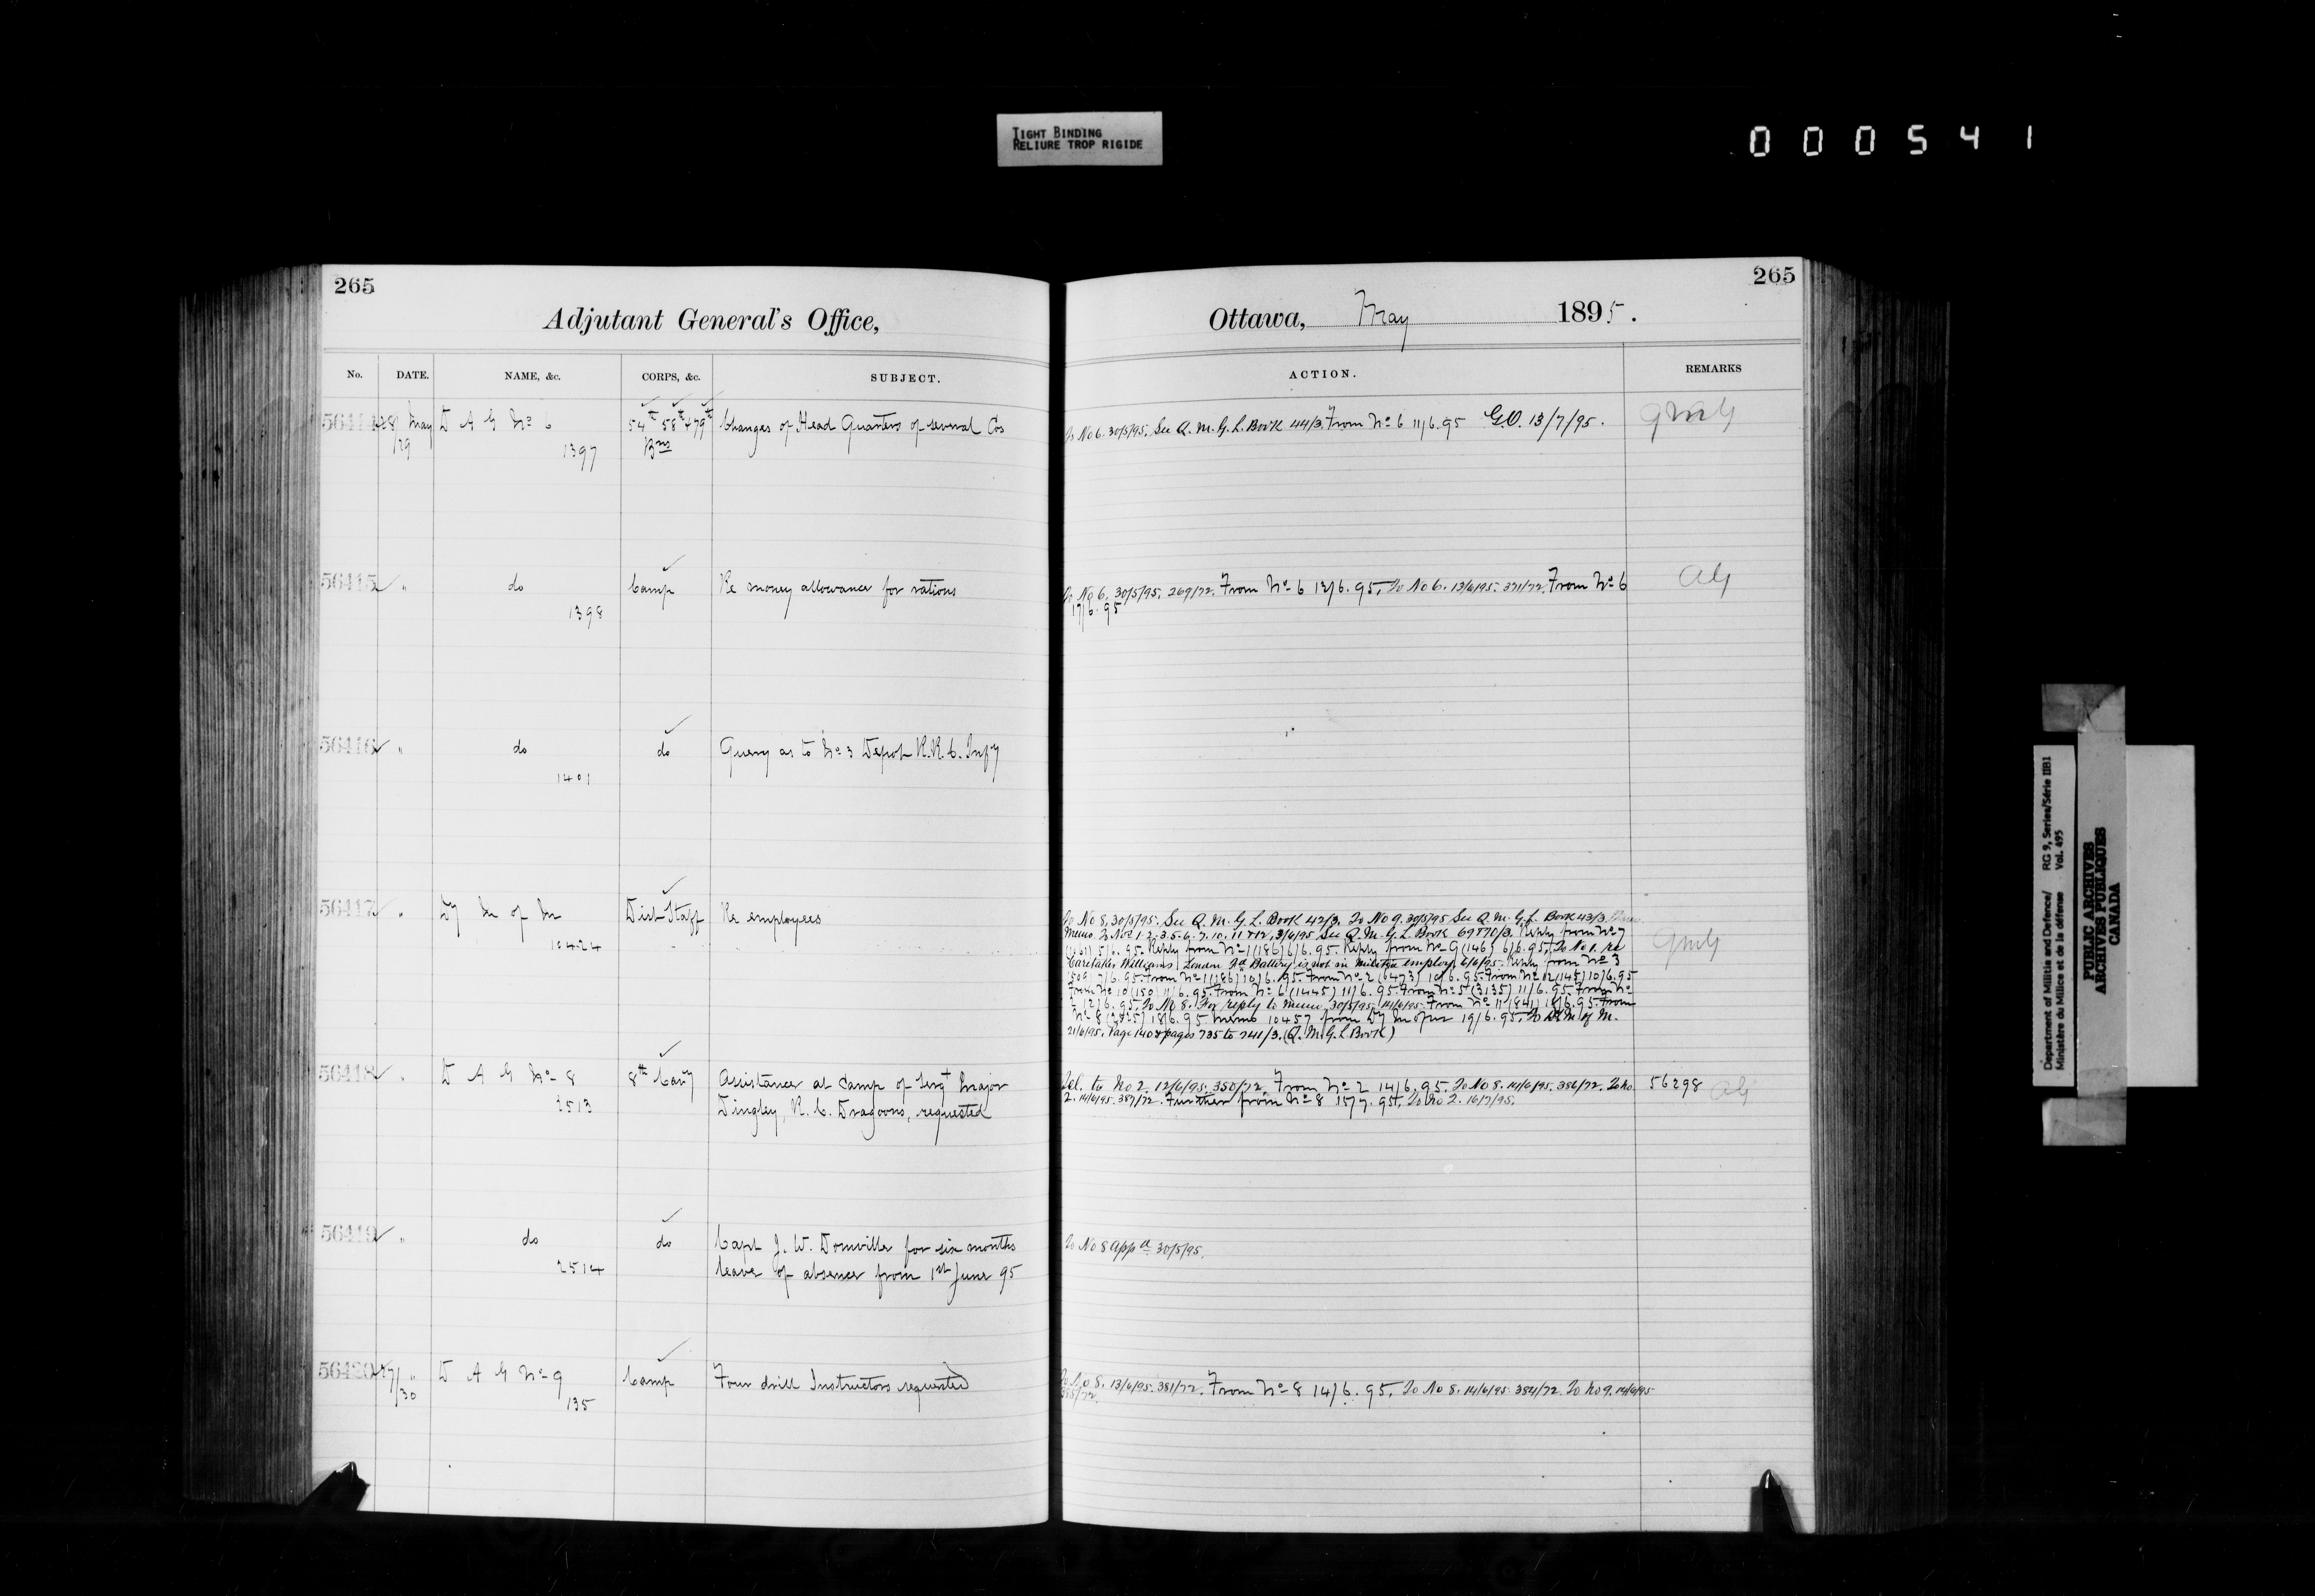 TIGHT BINDING
RELIURE TROP RIGIDE
000541
265
Adjutant General's Office,
No. DATE. NAME, &c. CORPS, &c. SUBJECT.
56414 28 May D A G No 6 54th 58th & 79th Changes of Head Quarters of several Cos
/29 1397 Bns
56415 " do Camp Re money allowance for rations
1398
56416 " do do Query as to No 3 Depot R.R.C. Infy
1401
56417 " Dy M of M Dist Staff Re employees
10424
56418 " D A G No 8 8th Cavy Assistance at Camp of Sergt Major
2513 Dingley, R. C. Dragoons, requested
56419 " do do Capt J. W. Domville for six months
2514 leave of absence from 1st June 95
56420 27/ " D A G No 9 Camp Four drill Instructors requested
/30 135
265
Ottawa, May 1895.
ACTION. REMARKS
To No 6. 30/5/95. See Q. M. G. L. Book 44/3. From No 6 11/6.95 G.O. 13/7/95. QMG
To No 6. 30/5/95. 269/72. From No 6 12/6.95. To No 6. 13/6/95. 371/72. From No 6 AG
17/6.95
To No 8, 30/5/95. See Q. M. G. L. Book 42/3. To No 9. 30/5/95 See Q. M. G. L. Book 43/3.
Memo. To Nos 1. 2. 3. 5. 6. 7. 10. 11 & 12, 3/6/95 See Q. M. G. L. Book 69 & 70/3. Reply from No 7
5/6.95. Reply from No 1 (186) 6/6.95. Reply from No 9 (146) 6/6.95. To No 1. re QMG
Caretaker Williams, London Fd Battery is not in militia employ, 6/6/95. Reply from No 3
509 7/6.95. From No 1 (186) 10/6.95. From No 2 (6473) 10/6.95. From No 12 (145) 10/6.95
From No 10 (150) 11/6.95. From No 6 (1445) 11/6.95. From No 5 (3135) 11/6.95. From No
2 12/6.95. To No 8. For reply to memo 30/5/95. 14/6/95. From No 11 (841) 18/6.95. From
No 8 (2525) 18/6.95 Memo 10457 from Dy M of M 19/6.95. To D M of M.
21/6/95. Page 140 & pages 735 to 741/3. (Q. M. G. L. Book)
Tel. to No 2. 12/6/95. 350/72. From No 2 14/6.95. To No 8. 14/6/95. 386/72. To No 56298 AG
2. 14/6/95. 387/72. Further from No 8 15/7.95. To No 2. 16/7/95.
To No 8 appd 30/5/95.
To No 8. 13/6/95. 381/72. From No 8 14/6.95. To No 8. 14/6/95. 384/72. To No 9. 14/6/95
385/72.
Department of Militia and Defence/ RG 9, Series/Série IIB1
Ministère du Milice et de la défense Vol. 495
PUBLIC ARCHIVES
ARCHIVES PUBLIQUES
CANADA